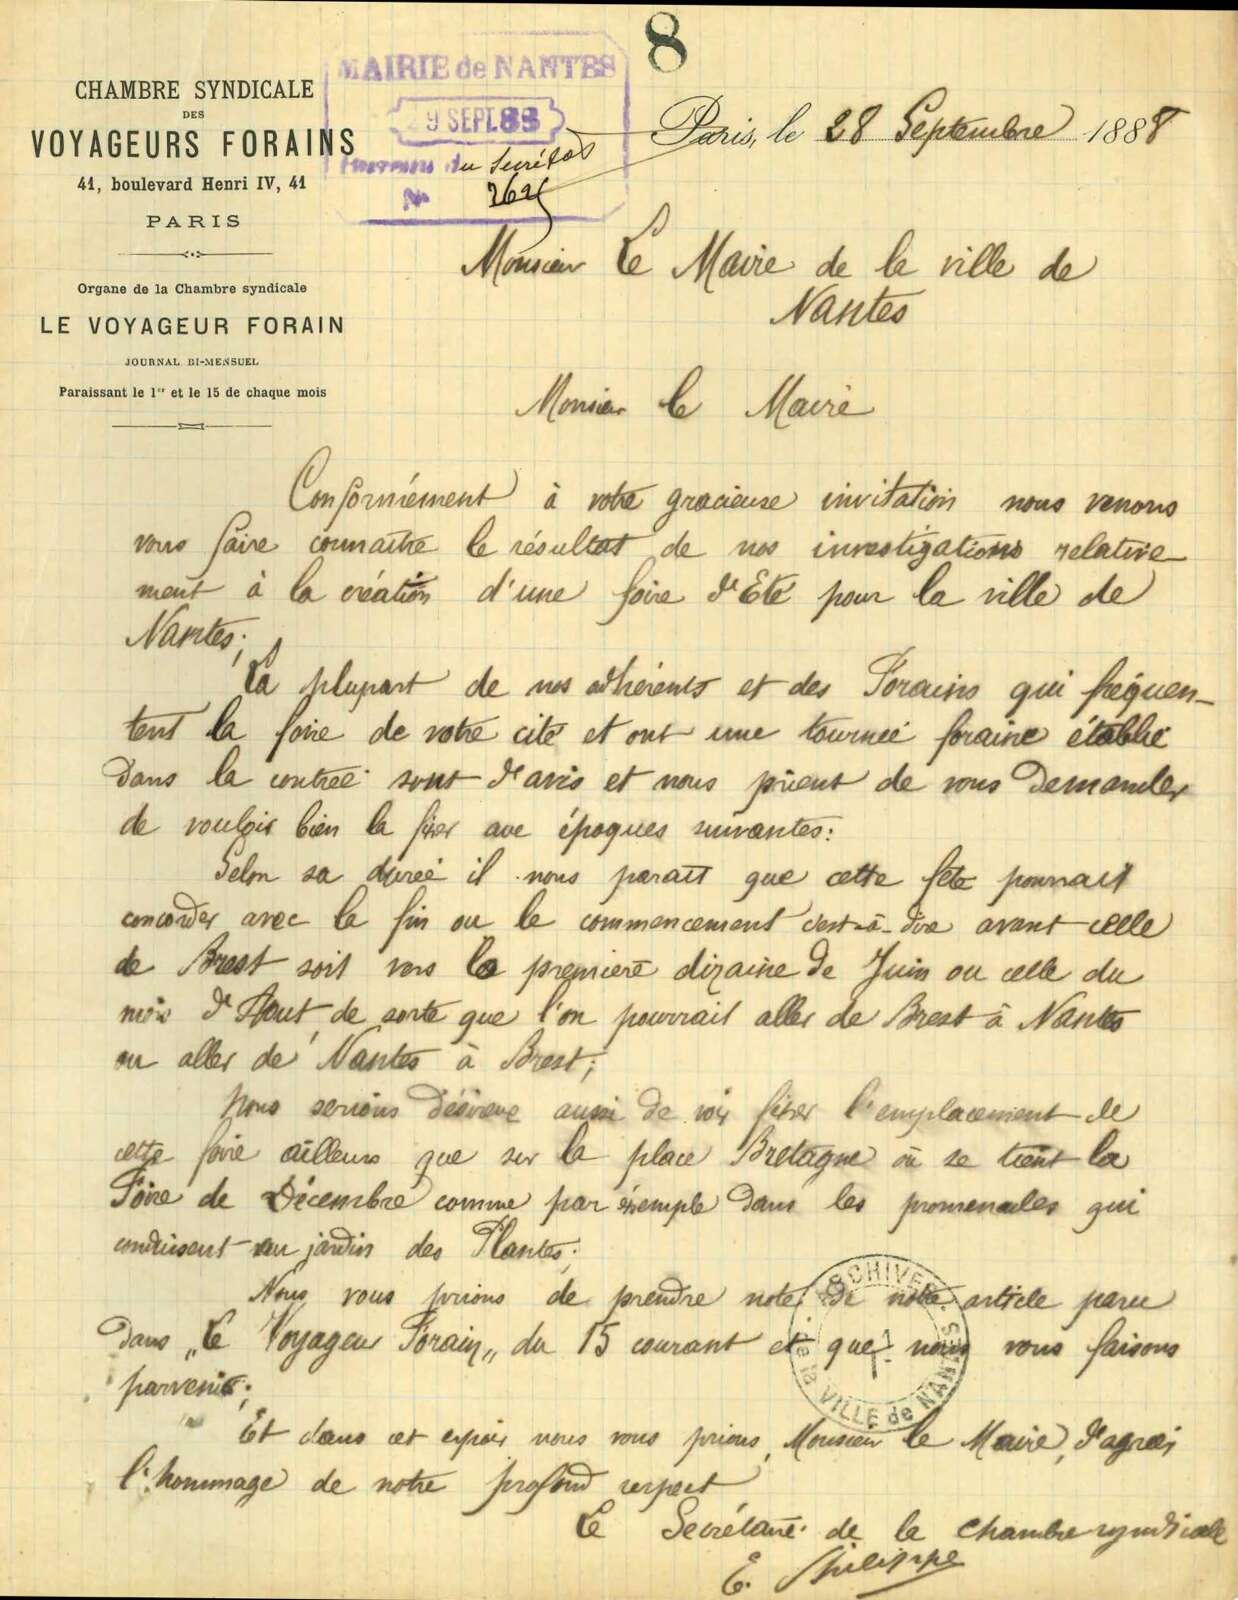 8
CHAMBRE SYNDICALE
DES
VOYAGEURS FORAINS
41, boulevard Henri IV, 41
PARIS
Organe de la Chambre syndicale
LE VOYAGEUR FORAIN
JOURNAL BI-MENSUEL
Paraissant le 1er et le 15 de chaque mois
MAIRIE de NANTES
29 SEPT. 88
du Secrétar
No 2625
Paris, le 28 Septembre 1888
Monsieur Le Maire de la ville de
Nantes
Monsieur le Maire
Conformément à votre gracieuse invitation nous venons
vous faire connaitre le résultat de nos investigations relative-
ment à la création d'une foire d'Eté pour la ville de
Nantes;
La plupart de nos adhérents et des Forains qui fréquen-
tent la foire de votre cité et ont une tournée foraine établie
dans la contrée sont d'avis et nous prient de vous demander
de vouloir bien la fixer aux époques suivantes:
Selon sa durée il nous parait que cette fête pourrait
concorder avec la fin ou le commencement c'est-à-dire avant celle
de Brest soit vers la première dizaine de Juin ou celle du
mois d'Aout, de sorte que l'on pourrait aller de Brest à Nantes
ou aller de Nantes à Brest;
Nous serions désireux aussi de voir fixer l'emplacement de
cette foire ailleurs que sur la place Bretagne où se tient la
Foire de Décembre comme par exemple dans les promenades qui
conduisent au jardin des Plantes;
Nous vous prions de prendre note de notre article paru
dans „Le Voyageur Forain„ du 15 courant et que nous vous faisons
parvenir;
Et dans cet espoir nous vous prions, Monsieur le Maire, d'agréer
l'hommage de notre profond respect
Le Secrétaire de la chambre syndicale
E. Philippe
ARCHIVES de la VILLE de NANTES